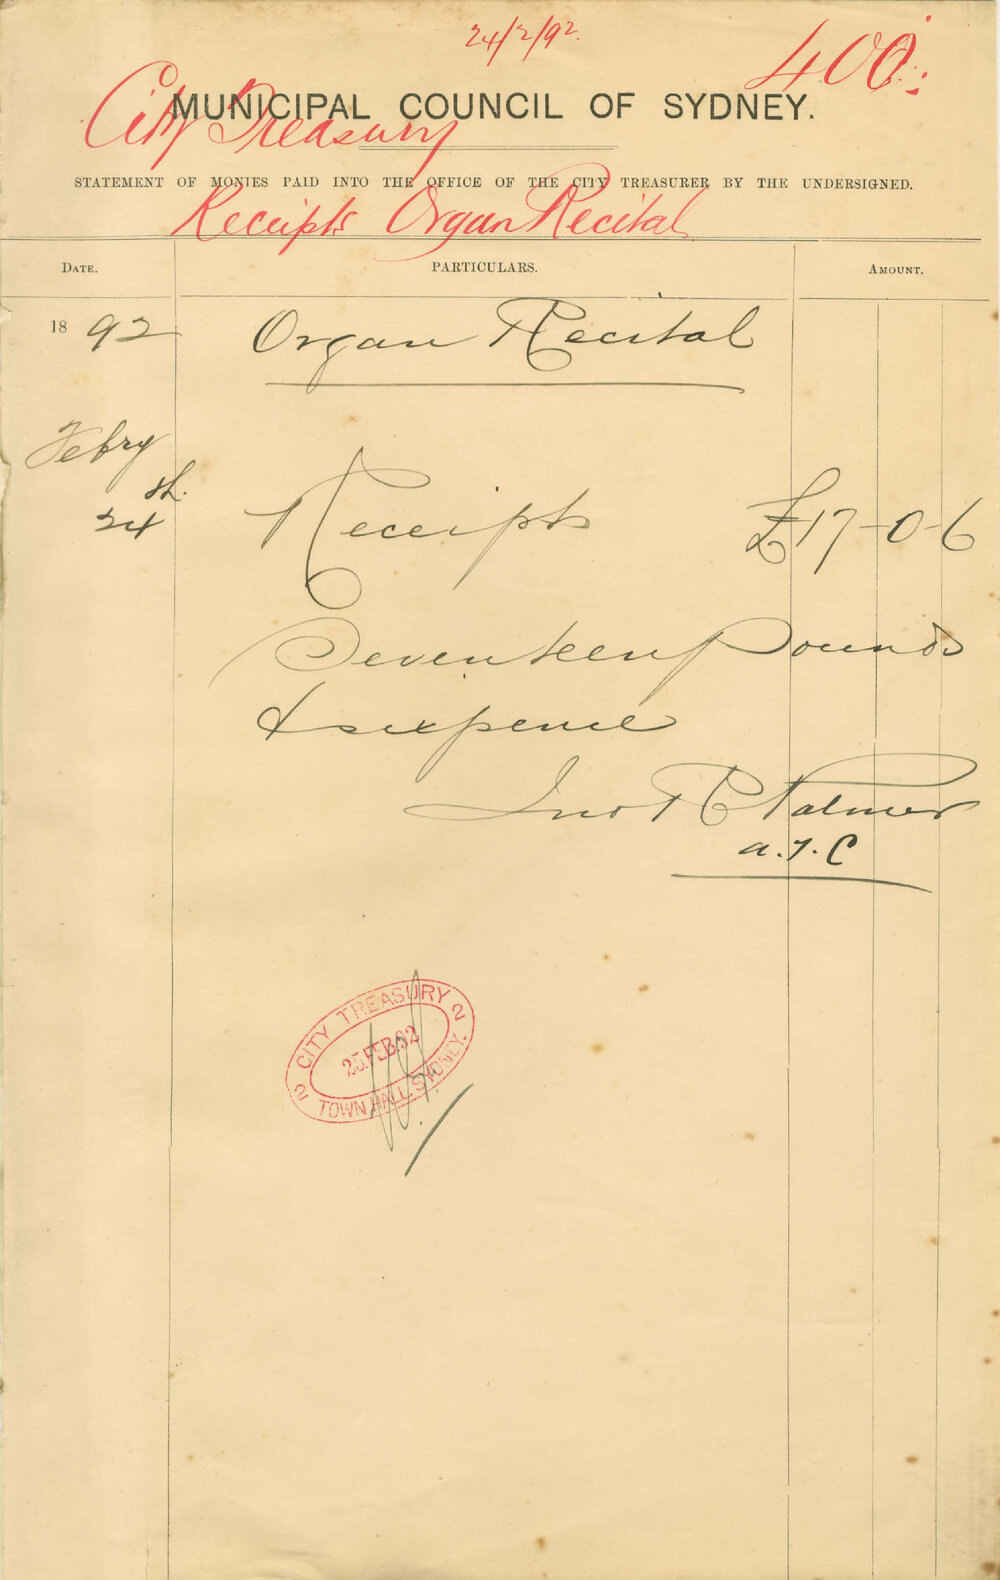 24/2/92.
400
MUNICIPAL COUNCIL OF SYDNEY.
City Treasury
STATEMENT OF MONIES PAID INTO THE OFFICE OF THE CITY TREASURER BY THE UNDERSIGNED.
Receipts Organ Recital
DATE. PARTICULARS. AMOUNT.
1892 Organ Recital
Febry
24th. Receipts £17-0-6
Seventeen Pounds
& sixpence
Jno R C Palmer
a.T.C
2 CITY TREASURY 2
25.FEB.92
TOWN HALL, SYDNEY.